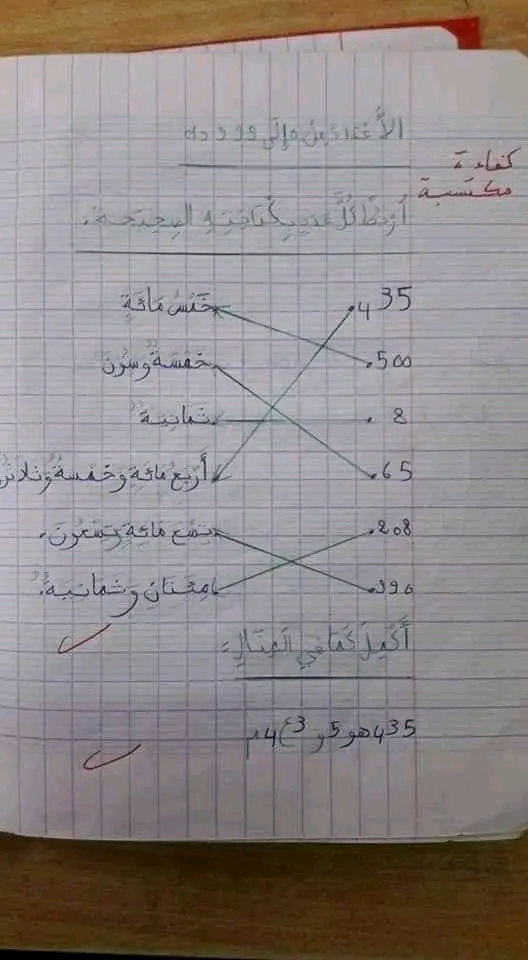 الأعداد من 0 إلى 999
كفاءة
مكتسبة
أربط كل عدد بكتابته الصحيحة.
435 خَمْسُ مَائَةٍ
500 خمسة وستون
8 ثمانية
65 أَرْبَعُ مَائَةٍ وَخَمْسَةٌ وَثَلاثُ
208 تِسْعُ مائةٍ وَتسعون.
990 مِئَتَان وَثمانية.
أُكْمِلُ كَمَا فِي المِثَالِ:
435 هو 5 و 3 ع 4 م